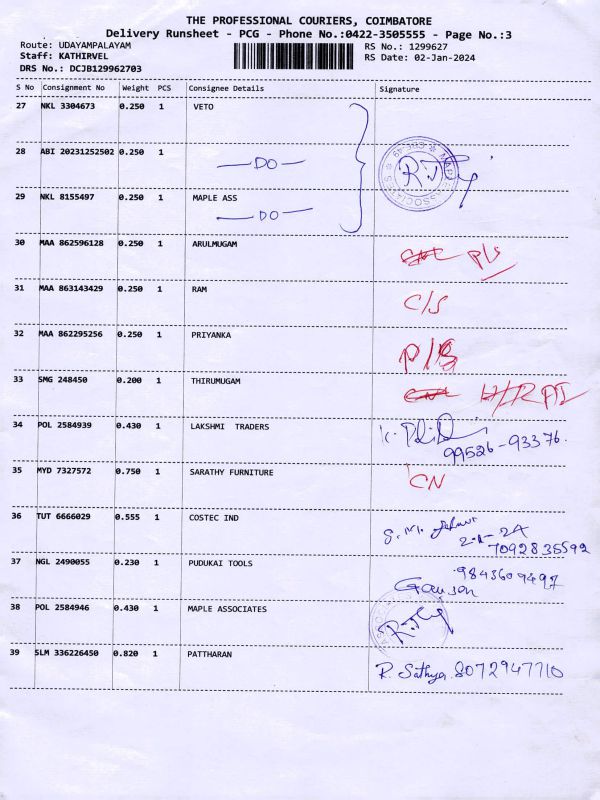 THE PROFESSIONAL COURIERS, COIMBATORE
Delivery Runsheet - PCG - Phone No.:0422-3505555 - Page No.:3
Route: UDAYAMPALAYAM
RS No.: 1299627
Staff: KATHIRVEL
RS Date: 02-Jan-2024
DRS No.: DCJB129962703
S No Consignment No Weight PCS Consignee Details Signature
27 NKL 3304673 0.250 1 VETO
28 ABI 20231252502 0.250 1
— DO —
29 NKL 8155497 0.250 1 MAPLE ASS
— DO —
30 MAA 862596128 0.250 1 ARULMUGAM
P/S
31 MAA 863143429 0.250 1 RAM
C/S
32 MAA 862295256 0.250 1 PRIYANKA
P/S
33 SMG 248450 0.200 1 THIRUMUGAM
34 POL 2584939 0.430 1 LAKSHMI TRADERS
99526-93376.
35 MYD 7327572 0.750 1 SARATHY FURNITURE
CN
36 TUT 6666029 0.555 1 COSTEC IND
2-1-24
7092835592
37 NGL 2490055 0.230 1 PUDUKAI TOOLS
9843609497
38 POL 2584946 0.430 1 MAPLE ASSOCIATES
39 SLM 336226450 0.820 1 PATTHARAN
R. Sathya 8072947710